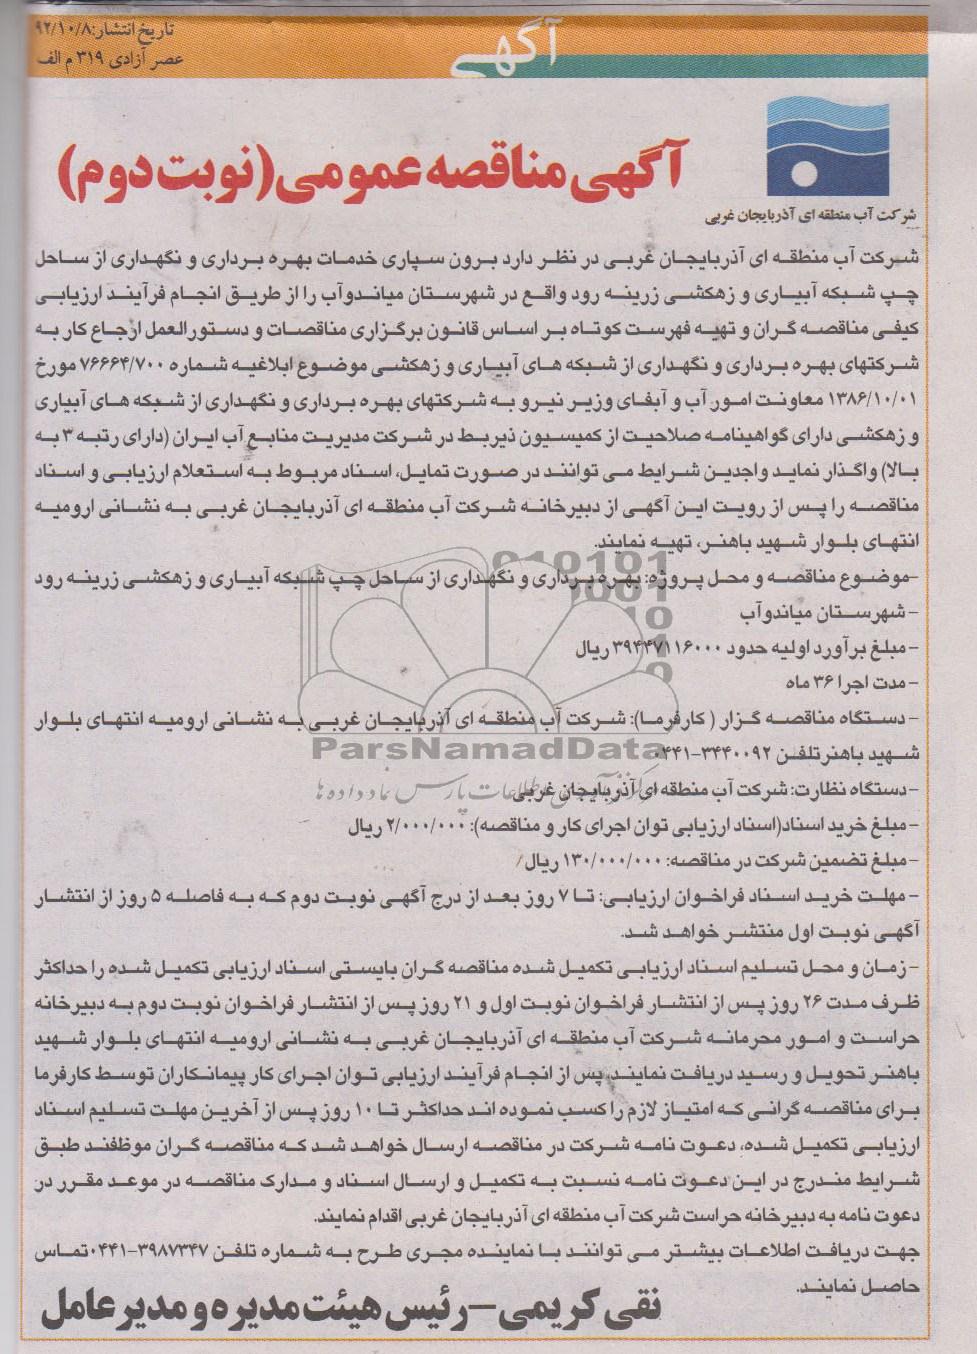 تاریخ انتشار:۹۲/۱۰/۸
عصر آزادی ۳۱۹ م الف
آگهی
آگهی مناقصه عمومی(نوبت دوم)
شرکت آب منطقه ای آذربایجان غربی
شرکت آب منطقه ای آذربایجان غربی در نظر دارد برون سپاری خدمات بهره برداری و نگهداری از ساحل
چپ شبکه آبیاری و زهکشی زرینه رود واقع در شهرستان میاندوآب را از طریق انجام فرآیند ارزیابی
کیفی مناقصه گران و تهیه فهرست کوتاه بر اساس قانون برگزاری مناقصات و دستورالعمل ارجاع کار به
شرکتهای بهره برداری و نگهداری از شبکه های آبیاری و زهکشی موضوع ابلاغیه شماره ۷۶۶۶۴/۷۰۰ مورخ
۱۳۸۶/۱۰/۰۱ معاونت امور آب و آبفای وزیر نیرو به شرکتهای بهره برداری و نگهداری از شبکه های آبیاری
و زهکشی دارای گواهینامه صلاحیت از کمیسیون ذیربط در شرکت مدیریت منابع آب ایران (دارای رتبه ۳ به
بالا) واگذار نماید واجدین شرایط می توانند در صورت تمایل، اسناد مربوط به استعلام ارزیابی و اسناد
مناقصه را پس از رویت این آگهی از دبیرخانه شرکت آب منطقه ای آذربایجان غربی به نشانی ارومیه
انتهای بلوار شهید باهنر، تهیه نمایند.
-موضوع مناقصه و محل پروژه: بهره برداری و نگهداری از ساحل چپ شبکه آبیاری و زهکشی زرینه رود
- شهرستان میاندوآب
- مبلغ برآورد اولیه حدود ۳۹۴۴۷۱۱۶۰۰۰ ریال
- مدت اجرا ۳۶ ماه
- دستگاه مناقصه گزار ( کارفرما): شرکت آب منطقه ای آذربایجان غربی به نشانی ارومیه انتهای بلوار
شهید باهنر تلفن ۳۴۴۰۰۹۲-۰۴۴۱
- دستگاه نظارت: شرکت آب منطقه ای آذربایجان غربی
- مبلغ خرید اسناد(اسناد ارزیابی توان اجرای کار و مناقصه): ۲/۰۰۰/۰۰۰ ریال
- مبلغ تضمین شرکت در مناقصه: ۱۳۰/۰۰۰/۰۰۰ ریال
- مهلت خرید اسناد فراخوان ارزیابی: تا ۷ روز بعد از درج آگهی نوبت دوم که به فاصله ۵ روز از انتشار
آگهی نوبت اول منتشر خواهد شد.
- زمان و محل تسلیم اسناد ارزیابی تکمیل شده مناقصه گران بایستی اسناد ارزیابی تکمیل شده را حداکثر
ظرف مدت ۲۶ روز پس از انتشار فراخوان نوبت اول و ۲۱ روز پس از انتشار فراخوان نوبت دوم به دبیرخانه
حراست و امور محرمانه شرکت آب منطقه ای آذربایجان غربی به نشانی ارومیه انتهای بلوار شهید
باهنر تحویل و رسید دریافت نمایند پس از انجام فرآیند ارزیابی توان اجرای کار پیمانکاران توسط کارفرما
برای مناقصه گرانی که امتیاز لازم را کسب نموده اند حداکثر تا ۱۰ روز پس از آخرین مهلت تسلیم اسناد
ارزیابی تکمیل شده، دعوت نامه شرکت در مناقصه ارسال خواهد شد که مناقصه گران موظفند طبق
شرایط مندرج در این دعوت نامه نسبت به تکمیل و ارسال اسناد و مدارک مناقصه در موعد مقرر در
دعوت نامه به دبیرخانه حراست شرکت آب منطقه ای آذربایجان غربی اقدام نمایند.
جهت دریافت اطلاعات بیشتر می توانند با نماینده مجری طرح به شماره تلفن ۳۹۸۷۳۴۷-۰۴۴۱تماس
حاصل نمایند.
نقی کریمی-رئیس هیئت مدیره و مدیرعامل
ParsNamadData